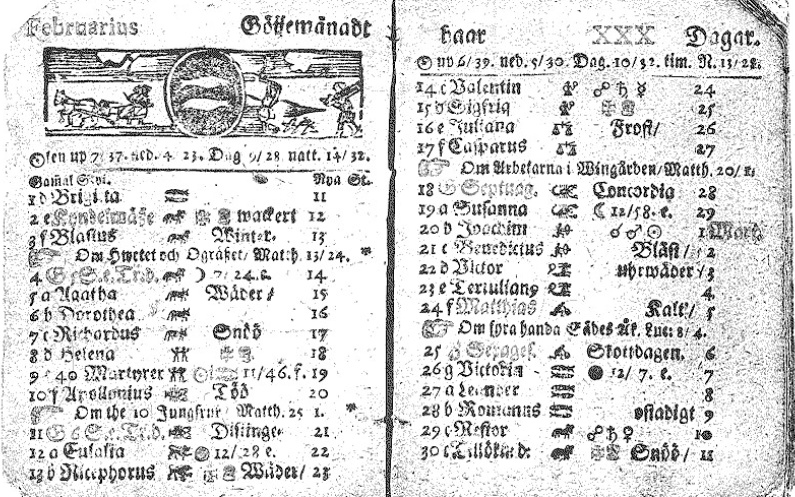 Februarius Göijemånadt
up 7/37. ned. 4 23. Dag 9/28 natt. 14/32.
Gamal Nya St.
1 d Brigitta 11
2 e Kyndelmässe wackert 12
3 f Blasius Winter. 13
Om Hwetet och Ogräset/ Matth. 13/24. *
4 G 5. S. e. T. D. ☽ 7/24. 14
5 a Agatha Wäder/ 15
6 b Dorothea 16
7 c Richardus Snöö 17
8 d Helena 18
9 e 40 Martyrer 11/46. f. 19
10 f Apollonius Töö 20
Om the 10 Jungfrur/ Matth. 25 1. *
11 G 6 S. e. T. D. Distinget 21
12 a Eulalia 12/28 e. 22
13 b Nicephorus Wäder/ 23
haar XXX Dagar.
☉ up 6/39. ned. 5/30. Dag. 10/32. tim. N. 13/28.
14 c Valentin ☍ ♄ ☿ 24
15 d Sigfrid 25
16 e Juliana Frost/ 26
17 f Casparus 27
Om Arbetarna i Wingården/ Matth. 20/1.
18 G Septuag. Concordia 28
19 a Susanna ☾ 12/58. e. 29
20 b Joachim ☌ ♂ ☉ 1 Mart
21 c Benedictus Bläst/ 2
22 d Victor uhrwäder/ 3
23 e Tertulianus 4
24 f Matthias Kalt/ 5
Om fyra handa Sädes Åk. Luc: 8/4.
25 G Sexages. Skottdagen. 6
26 g Victorin ● 12/7. e. 7
27 a Leander 8
28 b Romanus ostadigt 9
29 c Nestor ☍ ♄ ♀ 10
30 c Tillökn: d: Snöö/ 11